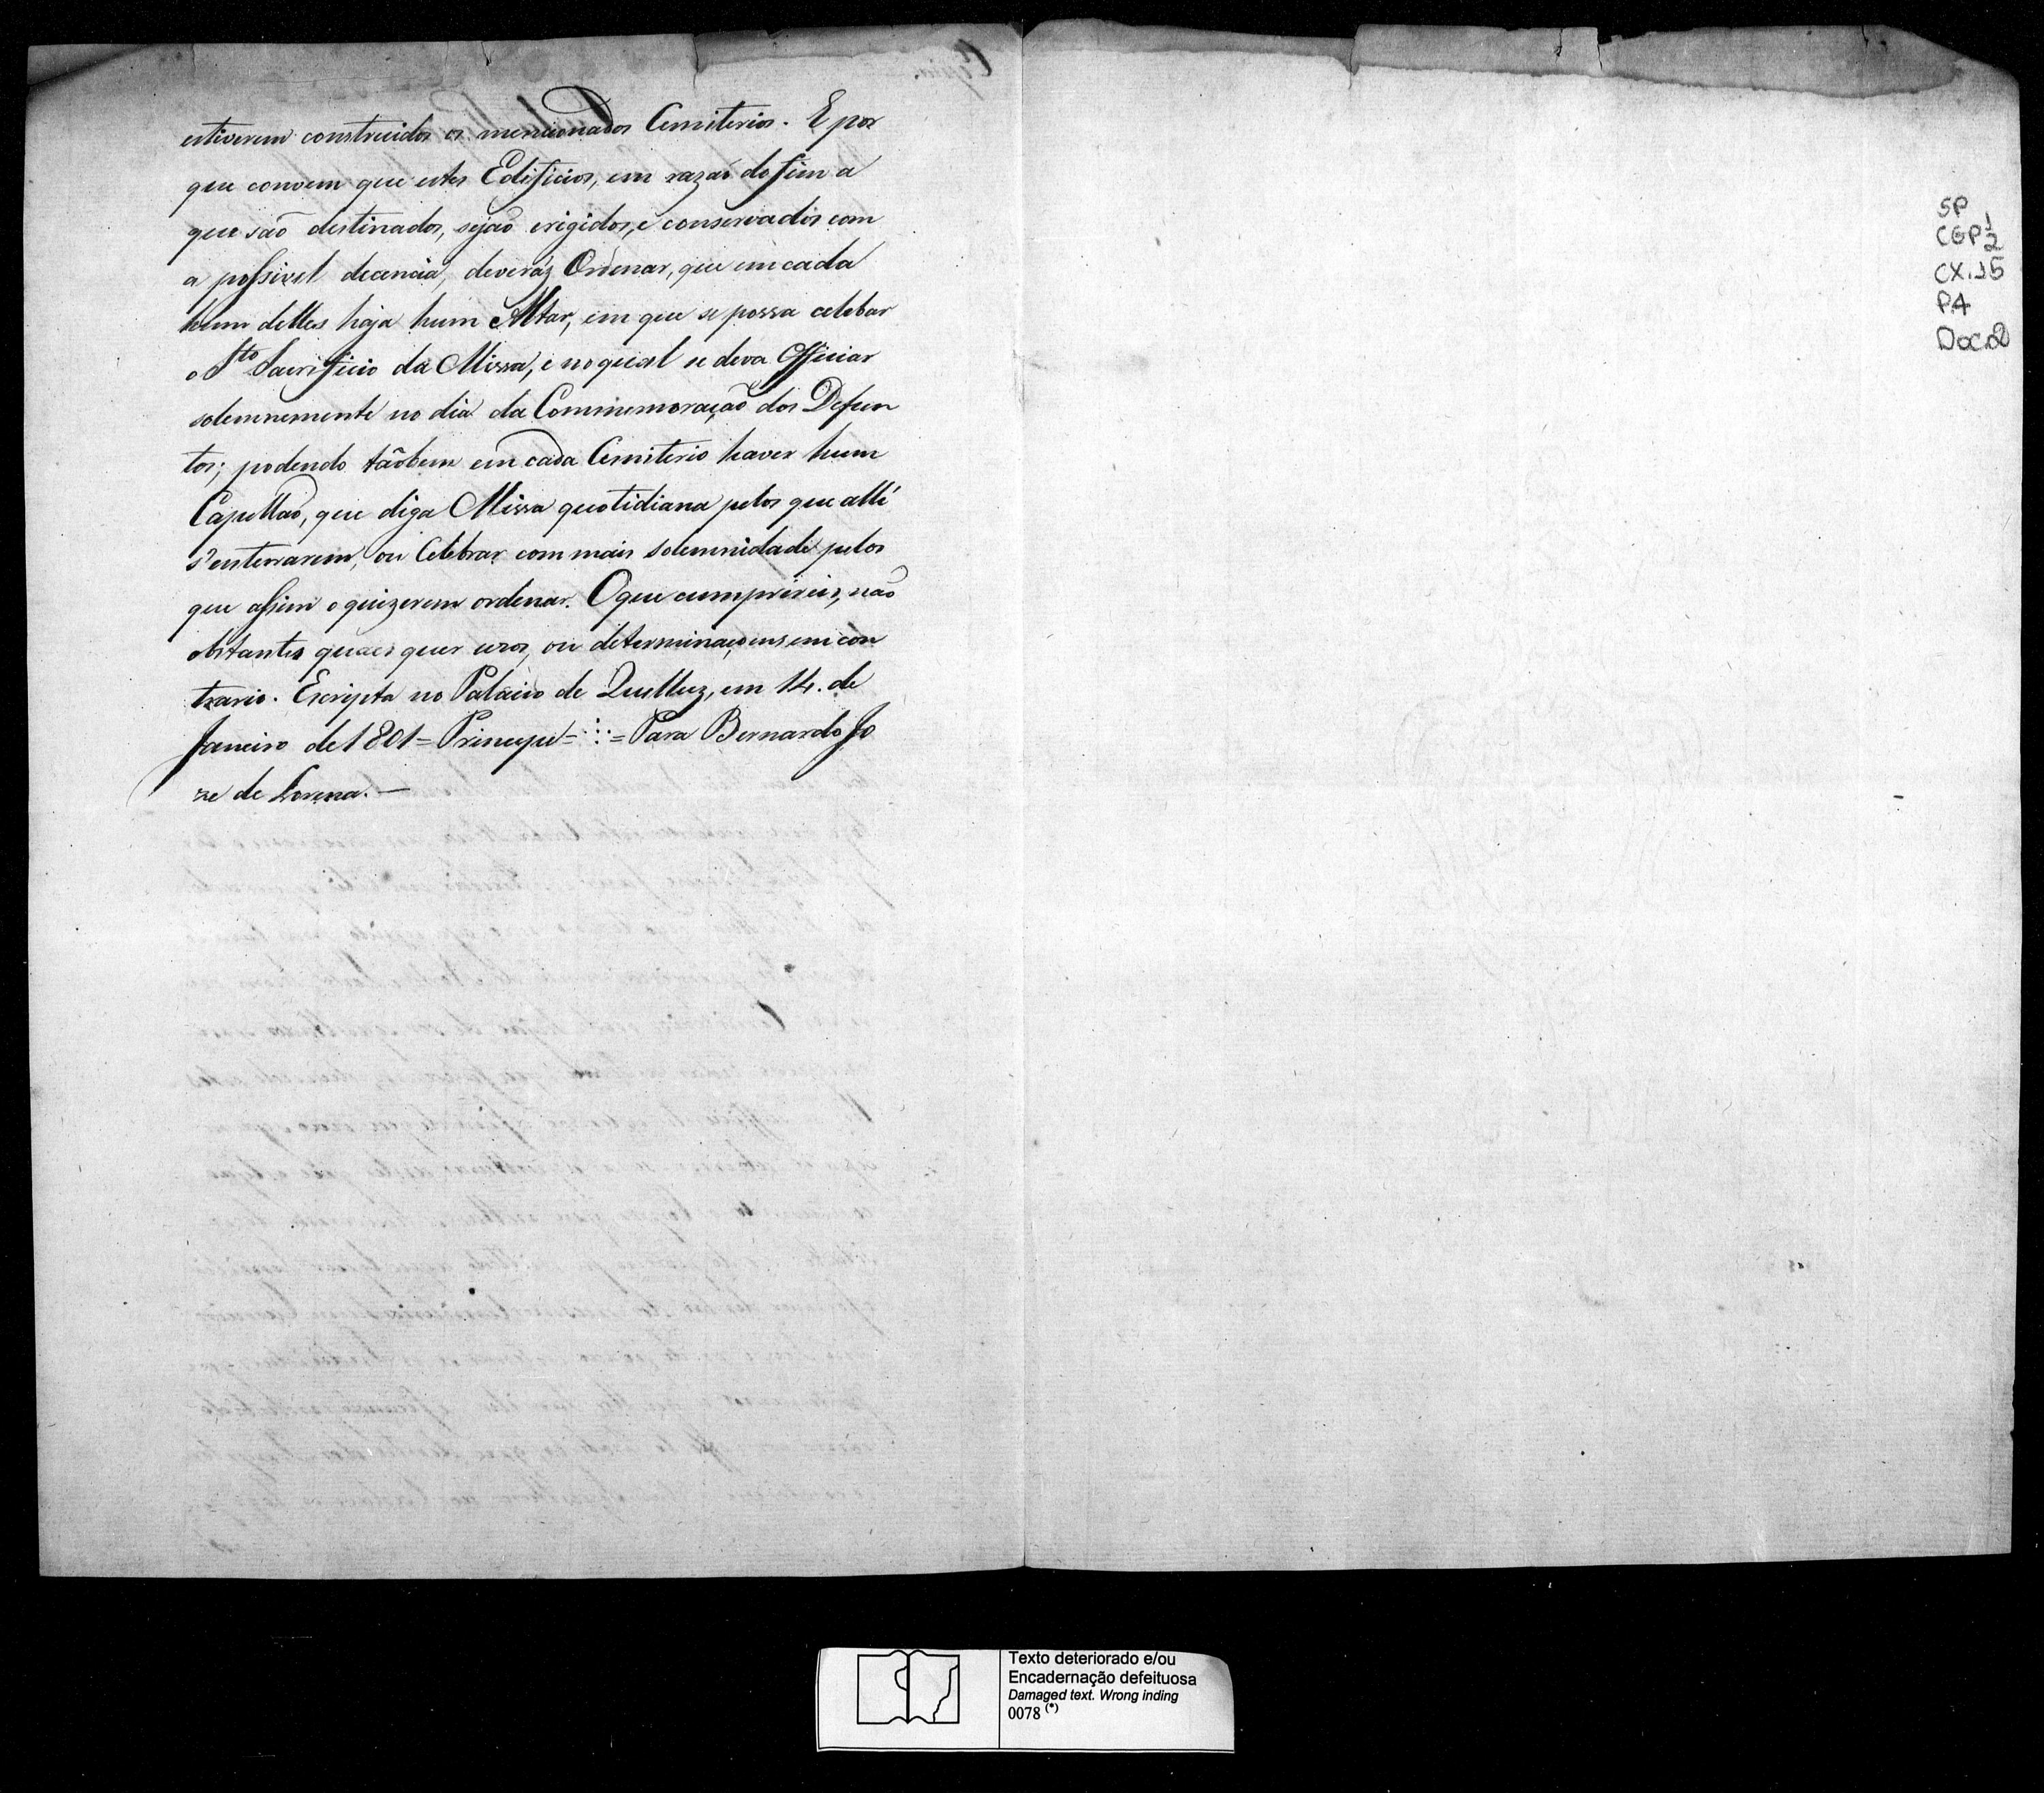 estiverem construidos os mencionados Cemiterios. E por
que convem que estes Edificios, em razaõ do fim a
que saõ destinados, sejaõ erigidos, e conservados com
a possivel decencia, deveráz Ordenar, que em cada
hum delles haja hum Altar, em que se possa celebar
o Sto. Sacrificio da Missa, e no qual se deva Officiar
solemnemente no dia da Commemoraçaõ dos Defun
tos; podendo tãobem em cada Cemiterio haver hum
Capellaõ, que diga Missa quotidiana pelos que alli
s'enterrarem, ou Celebrar com mais solemnidade pelos
que assim o quizerem ordenar. O que cumprireis, naõ
obstantes quaes quer uzos, ou determinaçoens em con
trario. Escripta no Palacio de Quelluz, em 14. de
Janeiro de 1801 = Principe = ∴ = Para Bernardo Jo
ze de Lorena. —
SP
CGP 1/2
CX.15
P.4
Doc.2
Texto deteriorado e/ou
Encadernação defeituosa
Damaged text. Wrong inding
0078 (*)